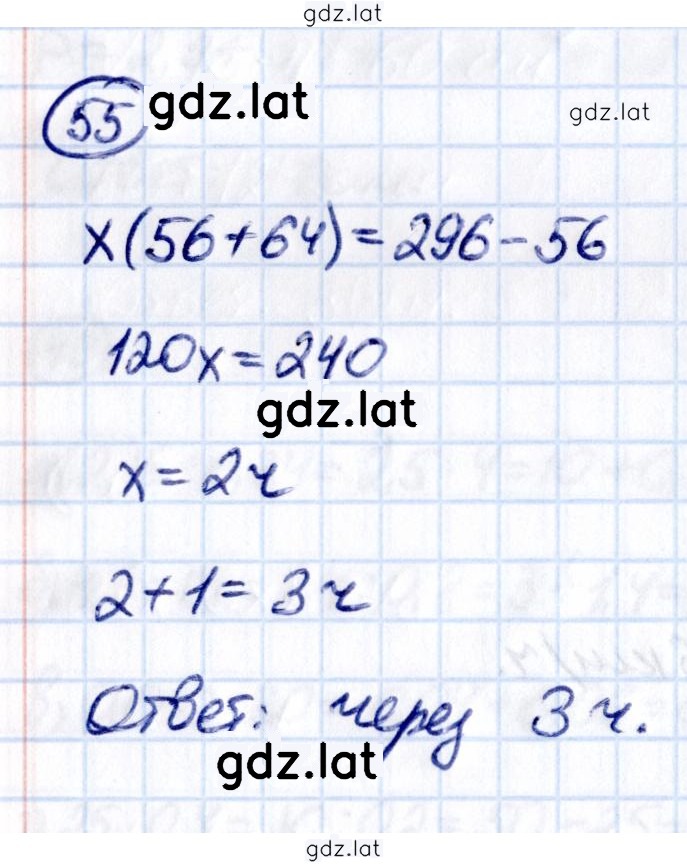 gdz.lat
55 gdz.lat
gdz.lat
x(56+64)=296-56
120x=240
gdz.lat
x=2ч
2+1=3ч
Ответ: через 3ч.
gdz.lat
gdz.lat